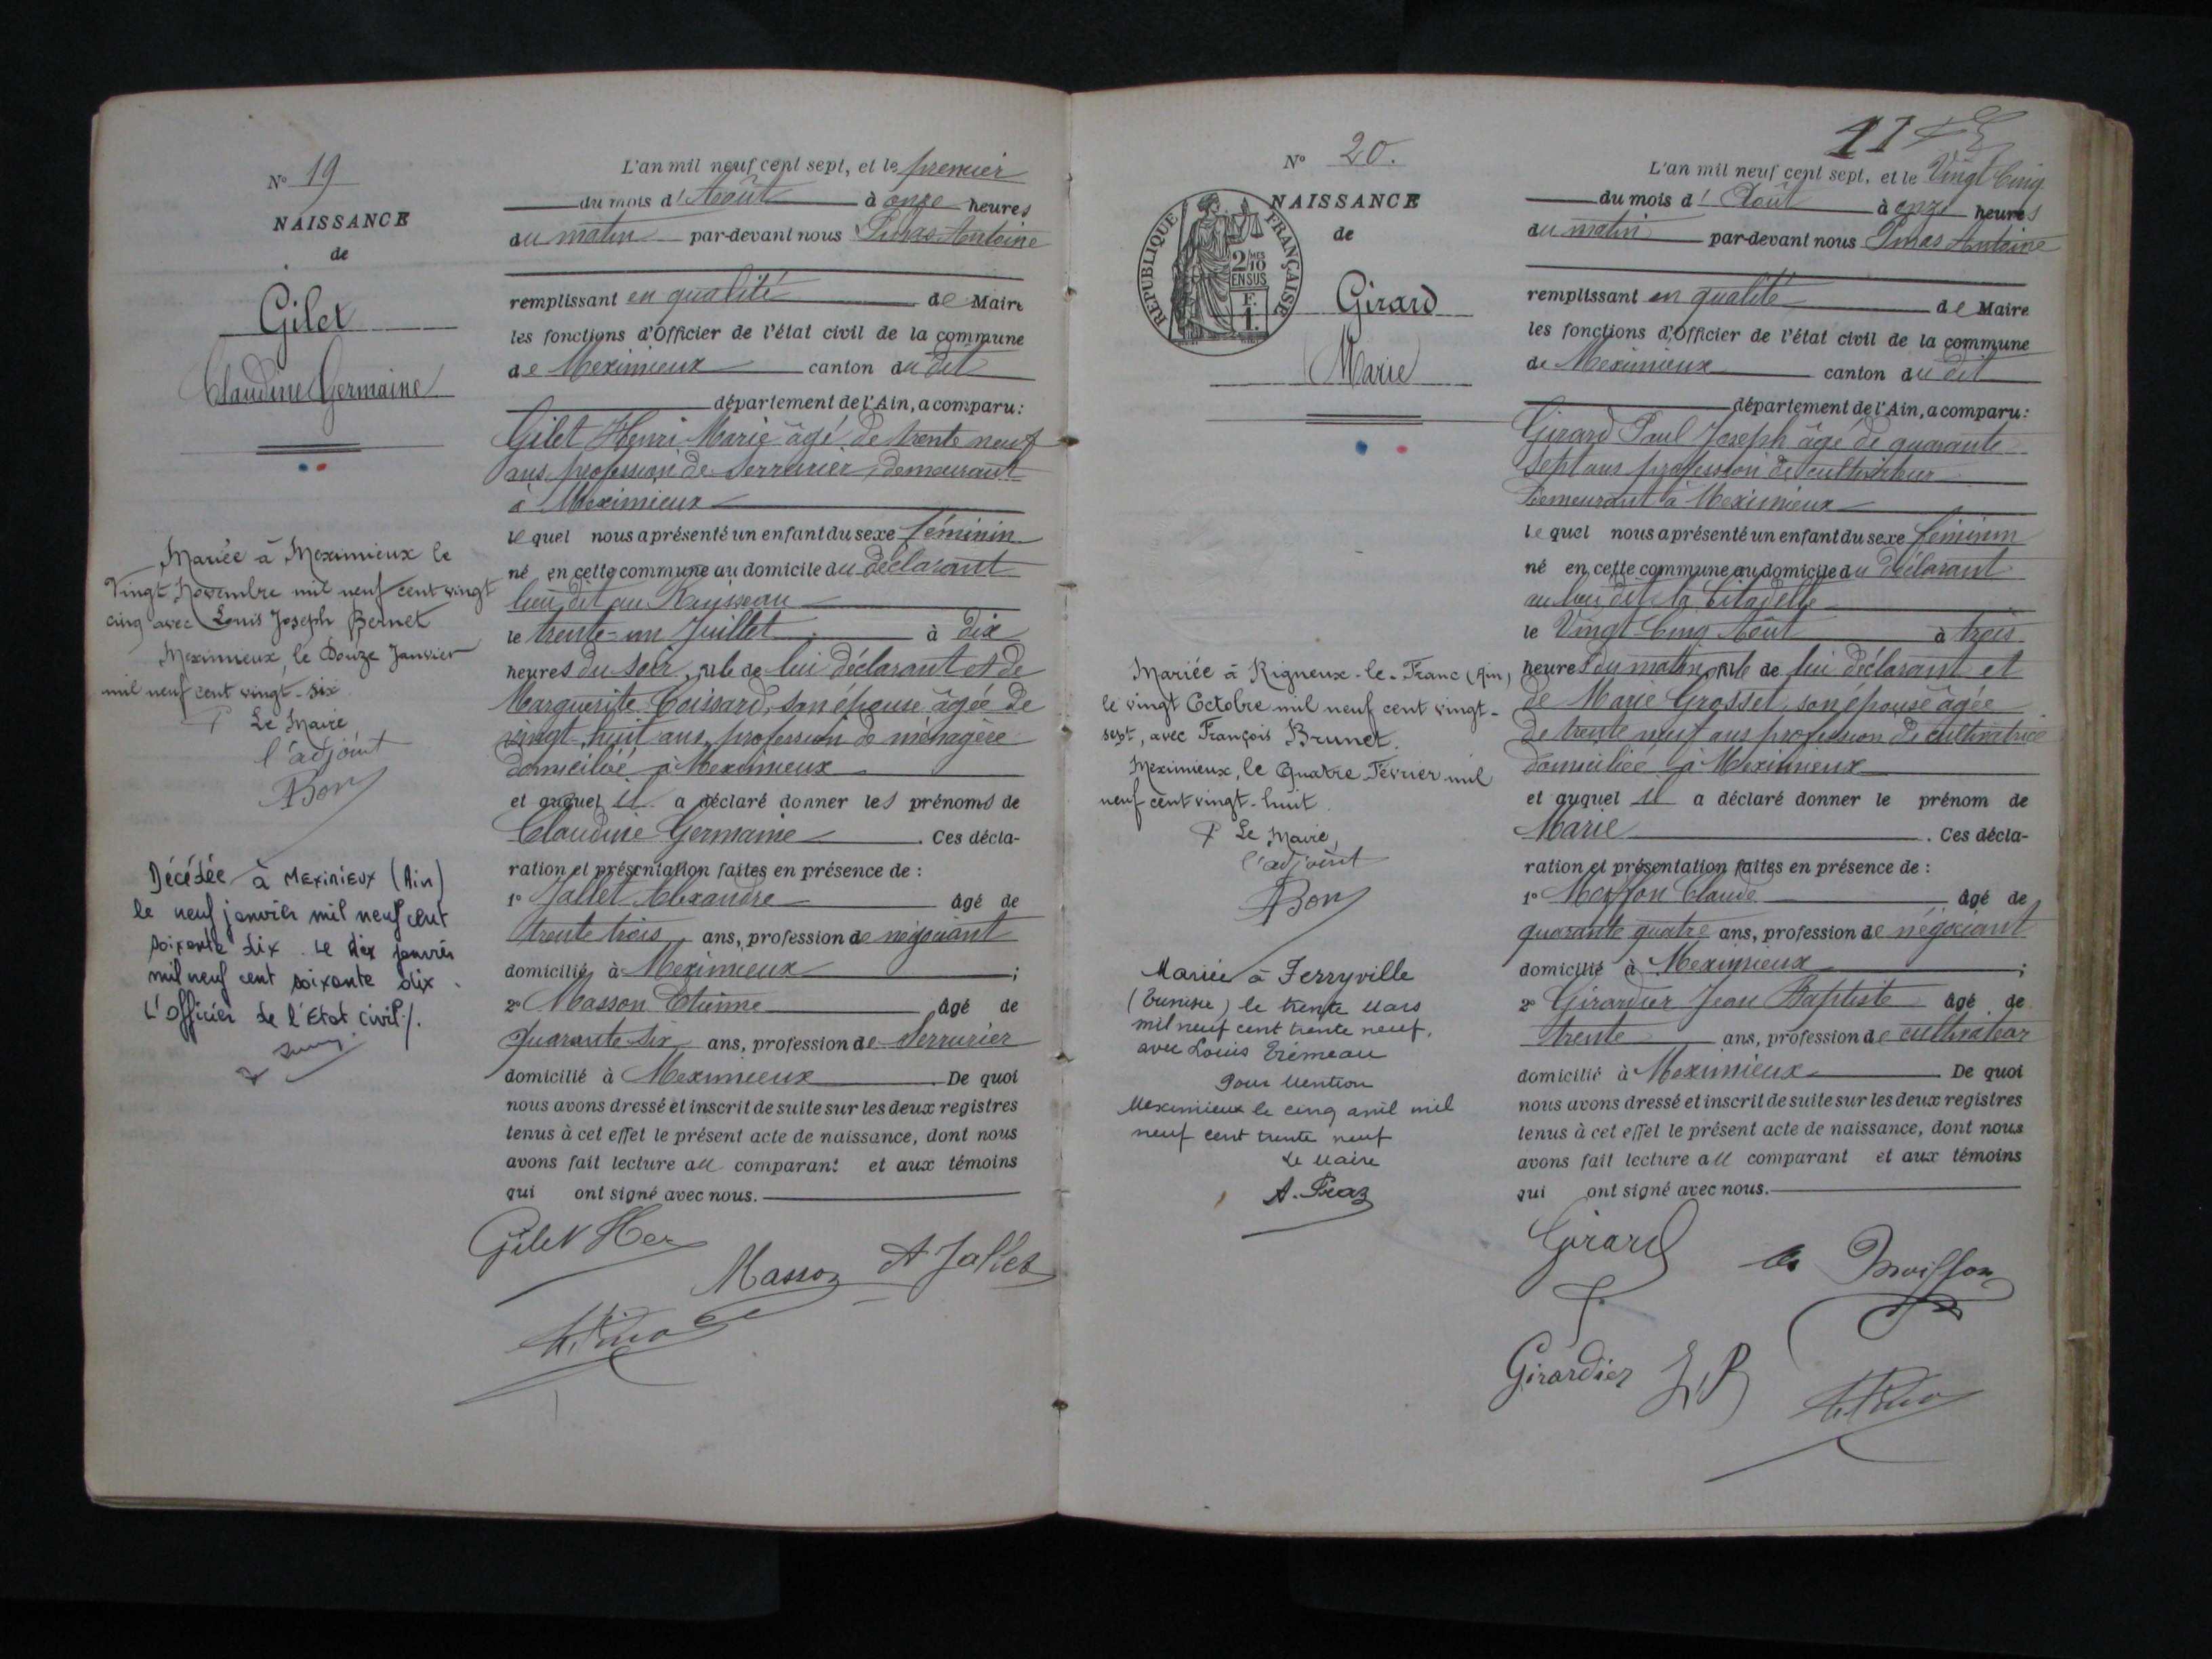 N° 19
NAISSANCE
de
Gilet
Claudine Germaine
Mariée à Meximieux le
Vingt Novembre mil neuf cent vingt
cinq avec Louis Joseph Bernet
Meximieux, le Douze Janvier
mil neuf cent vingt-six
P Le Maire
l'adjoint
Bon
Décédée à MEXIMIEUX (Ain)
le neuf janvier mil neuf cent
soixante dix. Le dix janvier
mil neuf cent soixante dix.
L'Officier de l'Etat Civil /.
L'an mil neuf cent sept, et le premier
du mois d'Août à onze heures
du matin par-devant nous Antoine
remplissant en qualité de Maire
les fonctions d'Officier de l'état civil de la commune
de Meximieux canton du dit
département de l'Ain, a comparu:
Gilet Henri Marie âgé de trente neuf
ans profession de Serrurier, demeurant
à Meximieux
le quel nous a présenté un enfant du sexe féminin
né en cette commune au domicile du déclarant
lieu dit au
le trente-un Juillet à dix
heures du soir, de lui déclarant et de
Marguerite Coissard, son épouse âgée de
vingt-huit ans, profession de ménagère
domiciliée à Meximieux
et auquel il a déclaré donner les prénoms de
Claudine Germaine. Ces décla-
ration et présentation faites en présence de :
1° Jallet Alexandre âgé de
trente trois ans, profession de négociant
domicilié à Meximieux ;
2° Masson Etienne âgé de
quarante six ans, profession de Serrurier
domicilié à Meximieux De quoi
nous avons dressé et inscrit de suite sur les deux registres
tenus à cet effet le présent acte de naissance, dont nous
avons fait lecture au comparant et aux témoins
qui ont signé avec nous.
Gilet Her
Masson A Jallet
11
N° 20.
NAISSANCE
de
REPUBLIQUE FRANÇAISE
2/10 MES
EN SUS
F.
1.
Girard
Marie
Mariée à Rigneux-le-Franc (Ain)
le vingt Octobre mil neuf cent vingt-
sept, avec François Brunet.
Meximieux, le Quatre Février mil
neuf cent vingt-huit
P Le Maire,
l'adjoint
Bon
Mariée à Ferryville
(Tunisie) le trente Mars
mil neuf cent trente neuf.
avec Louis Trémeau
Pour Mention
Meximieux le cinq avril mil
neuf cent trente neuf
Le Maire
L'an mil neuf cent sept, et le Vingt Cinq
du mois d'Août à onze heures
du matin par-devant nous Antoine
remplissant en qualité de Maire
les fonctions d'Officier de l'état civil de la commune
de Meximieux canton du dit
département de l'Ain, a comparu:
Girard Paul Joseph âgé de quarante
sept ans profession de cultivateur
Demeurant à Meximieux
le quel nous a présenté un enfant du sexe féminin
né en cette commune au domicile du déclarant
au lieu dit la Citadelle
le Vingt Cinq Août à trois
heures du matin, de lui déclarant et
de Marie Grosset, son épouse âgée
de trente neuf ans profession de cultivatrice
domiciliée à Meximieux
et auquel il a déclaré donner le prénom de
Marie. Ces décla-
ration et présentation faites en présence de :
1° Moisson Claude âgé de
quarante quatre ans, profession de négociant
domicilié à Meximieux ;
2° Girardier Jean Baptiste âgé de
trente ans, profession de cultivateur
domicilié à Meximieux De quoi
nous avons dressé et inscrit de suite sur les deux registres
tenus à cet effet le présent acte de naissance, dont nous
avons fait lecture au comparant et aux témoins
qui ont signé avec nous.
Girard Moisson
Girardier J, B